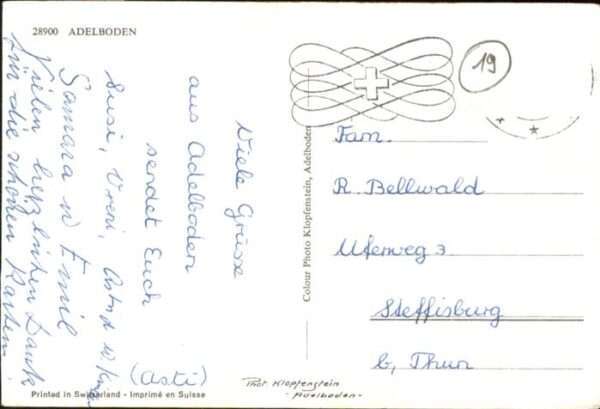 28900 ADELBODEN
Viele Grüsse
aus Adelboden
sendet Euch
Susi, Vreni, Astrid u.
(Asti)
Samara u Emil
Vielen herzlichen Dank
für die schönen Karten.
19
Fam.
R. Bellwald
Uferweg 3
Steffisburg
b, Thun
Colour Photo Klopfenstein, Adelboden
Phot Klopfenstein
- Adelboden -
Printed in Switzerland - Imprimé en Suisse